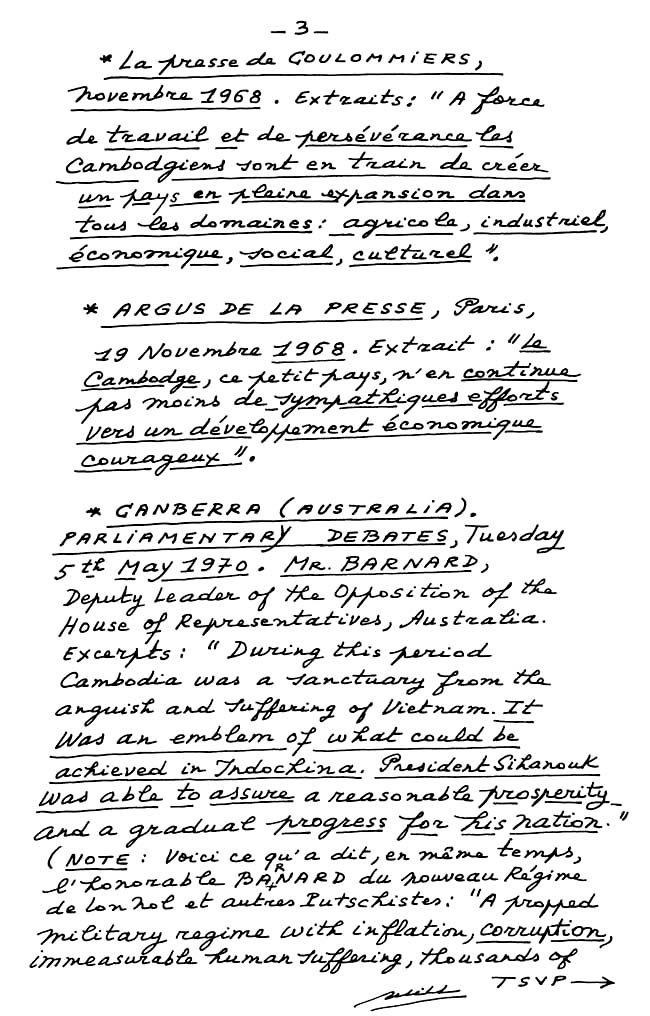 - 3 -
* La presse de COULOMMIERS,
novembre 1968. Extraits: "A force
de travail et de persévérance les
Cambodgiens sont en train de créer
un pays en pleine expansion dans
tous les domaines: agricole, industriel,
économique, social, culturel".
* ARGUS DE LA PRESSE, Paris,
19 Novembre 1968. Extrait: "Le
Cambodge, ce petit pays, n'en continue
pas moins de sympathiques efforts
vers un développement économique
courageux".
* CANBERRA (AUSTRALIA).
PARLIAMENTARY DEBATES, Tuesday
5th May 1970. MR. BARNARD,
Deputy Leader of the Opposition of the
House of Representatives, Australia.
Excerpts: "During this period
Cambodia was a sanctuary from the
anguish and suffering of Vietnam. It
was an emblem of what could be
achieved in Indochina. President Sihanouk
was able to assure a reasonable prosperity
and a gradual progress for his nation."
(NOTE: Voici ce qu'a dit, en même temps,
l'honorable BARNARD du nouveau Régime
de Lon Nol et autres Putschistes: "A propped
military regime with inflation, corruption,
immeasurable human suffering, thousands of
TSVP →